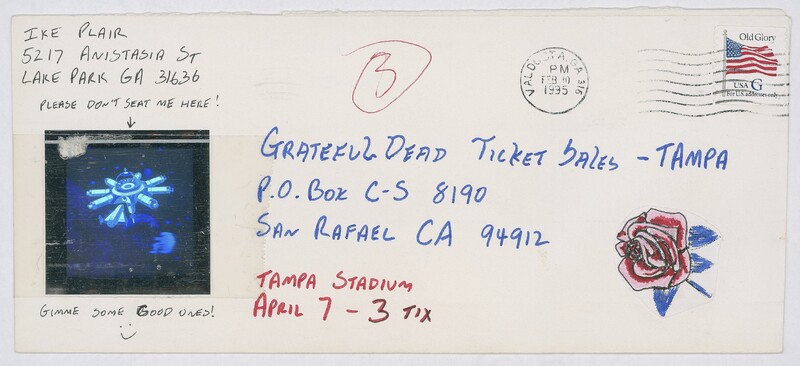 IKE PLAIR
5217 ANISTASIA ST
LAKE PARK GA 31636
PLEASE DON'T SEAT ME HERE!
GIMME SOME GOOD ONES!
B
VALDOSTA, GA 316
PM
FEB 10
1995
Old Glory
USA G
For U.S. addresses only
GRATEFUL DEAD TICKET SALES - TAMPA
P.O. BOX C-S 8190
SAN RAFAEL CA 94912
TAMPA STADIUM
APRIL 7 - 3 TIX